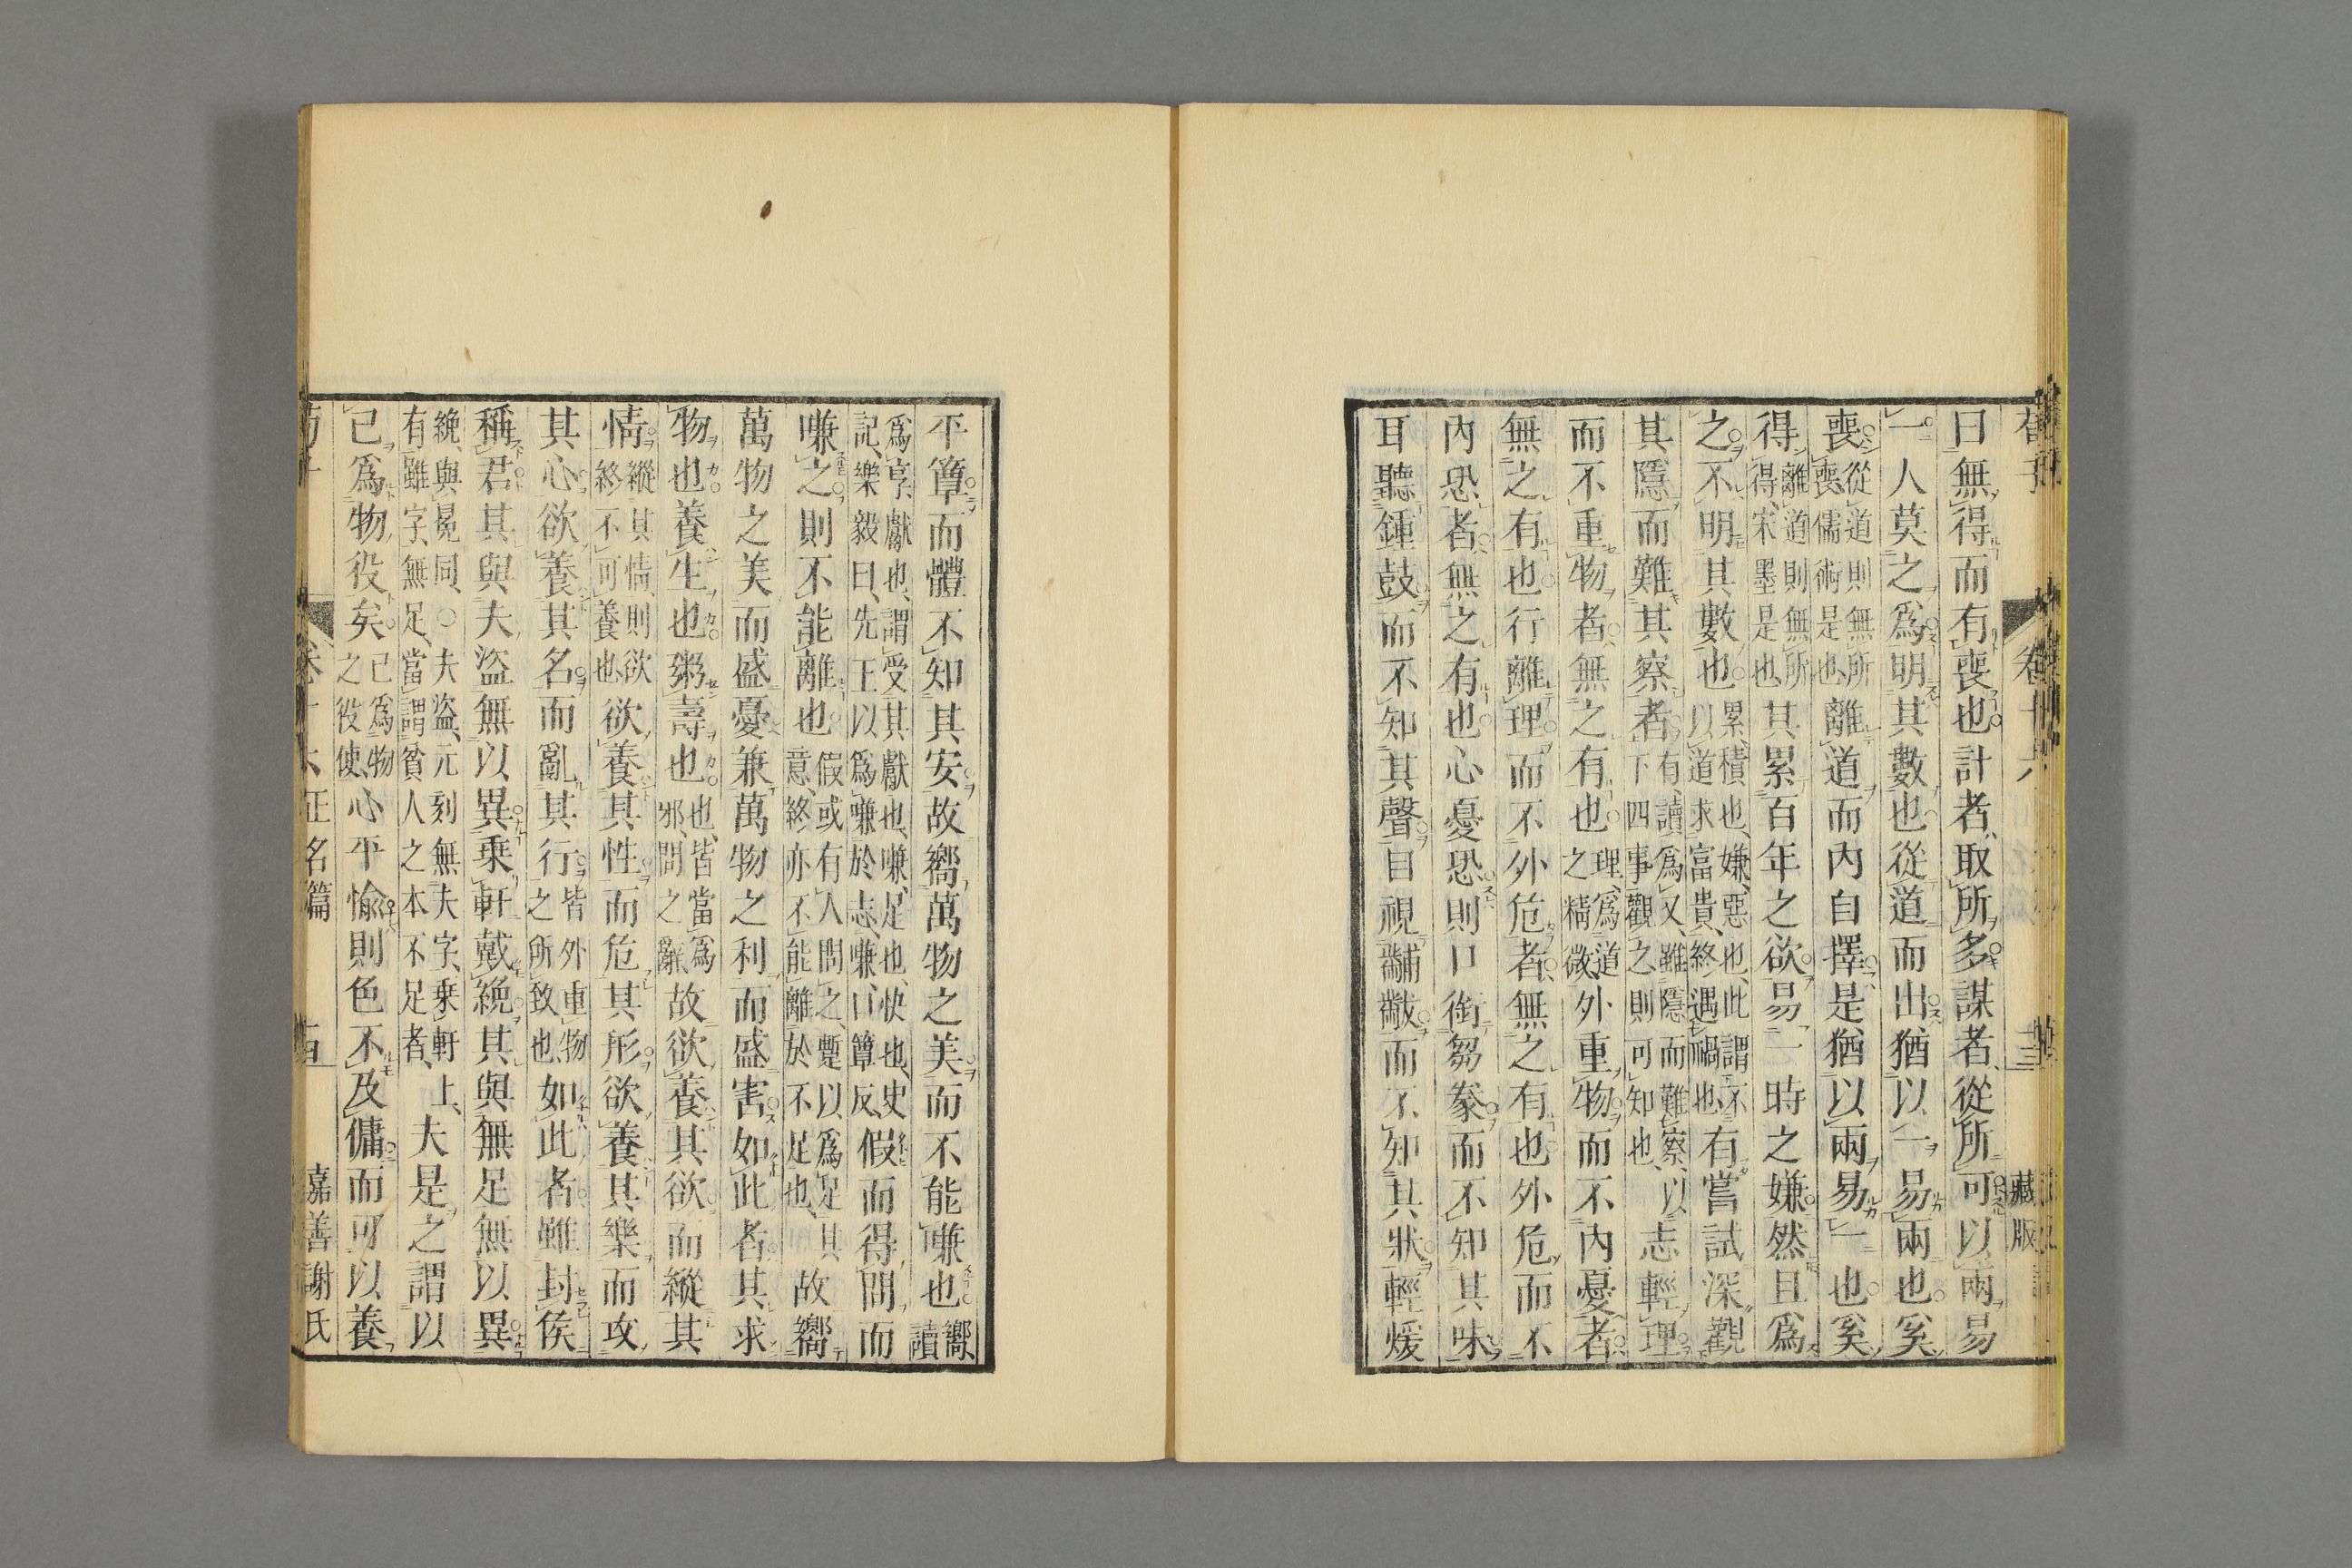 荀子 卷十六 藏版
曰無得而有喪也計者取所多謀者從所可以兩易
一人莫之爲明其數也從道而出猶以一易兩也奚
喪從道則無所喪儒術是也離道而內自擇是猶以兩易一也奚
得離道則無所得宋墨是也其累百年之欲易一時之嫌然且爲
之不明其數也累積也嫌惡也此謂不以道求富貴終遇禍也有嘗試深觀
其隱而難其察者有讀爲又雖隱而難察以下四事觀之則可知也志輕理
而不重物者無之有也理爲道之精微外重物而不內憂者
無之有也行離理而不外危者無之有也外危而不
內恐者無之有也心憂恐則口銜芻豢而不知其味
耳聽鍾鼓而不知其聲目視黼黻而不知其狀輕煖
平簟而體不知其安故嚮萬物之美而不能嗛也嚮讀
爲享獻也謂受其獻也嗛足也快也史記樂毅曰先王以爲嗛於志嗛口簟反假而得問而
嗛之則不能離也假或有人問之蹔以爲足其意終亦不能離於不足也故嚮
萬物之美而盛憂兼萬物之利而盛害如此者其求
物也養生也粥壽也也皆當爲邪問之辭故欲養其欲而縱其
情縱其情則欲終不可養也欲養其性而危其形欲養其樂而攻
其心欲養其名而亂其行皆外重物之所致也如此者雖封侯
稱君其與夫盜無以異乘軒戴絻其與無足無以異
絻與冕同○夫盜元刻無夫字乘軒上有雖字無足當謂貧人之本不足者夫是之謂以
己爲物役矣己爲物之役使心平愉則色不及傭而可以養
卷十六 正名篇 嘉善謝氏